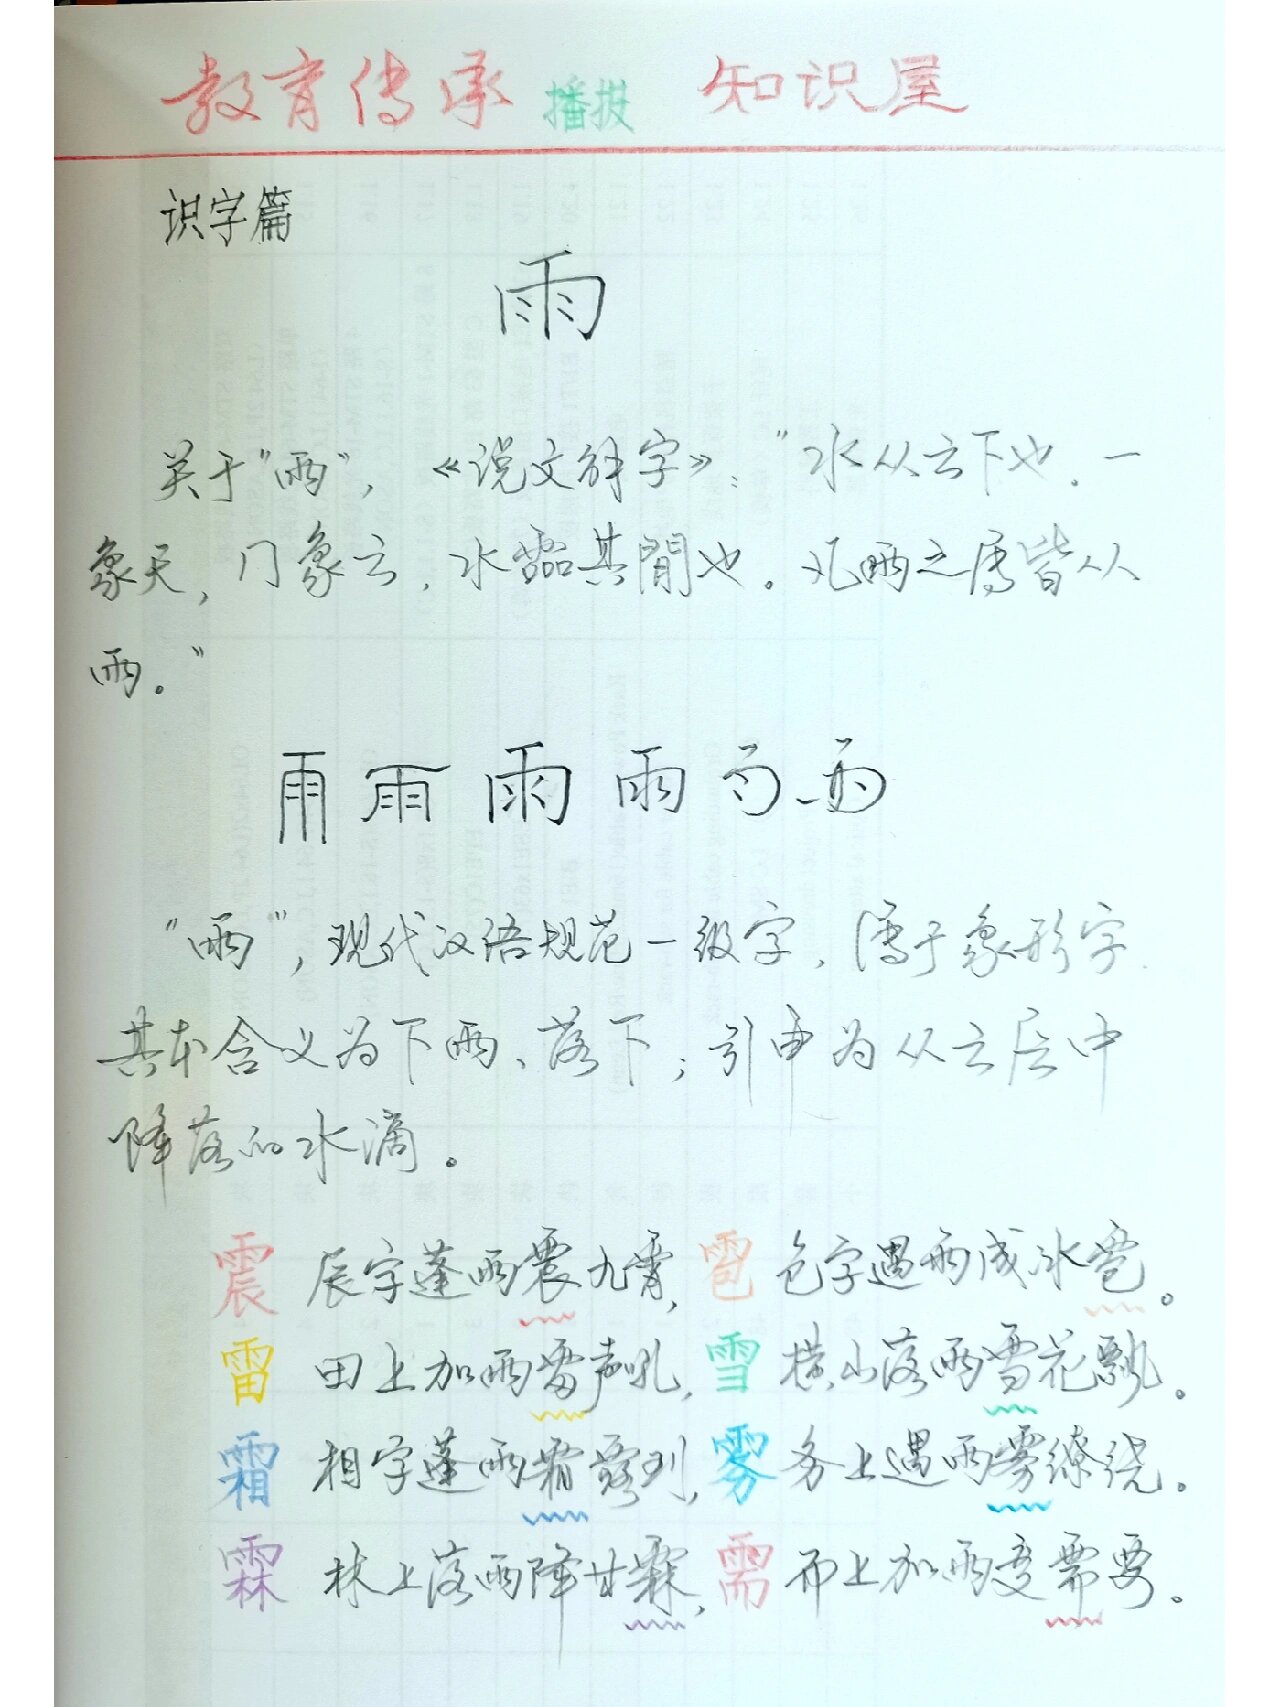 教育传承 播报 知识屋
识字篇
雨
关于“雨”，《说文解字》：“水从云下也．一
象天，冂象云，水霝其閒也。凡雨之属皆从
雨。”
雨 雨 雨 雨 雨 雨
“雨”，现代汉语规范一级字，属于象形字．
其本含义为下雨、落下；引申为从云层中
降落的水滴。
震 辰字蓬雨震九霄，雹 包字遇雨成冰雹。
雷 田上加雨雷声吼，雪 横山落雨雪花飘。
霜 相字蓬雨霜露到，雾 务上遇雨雾缭绕。
霖 林上落雨降甘霖，需 而上加雨变需要。